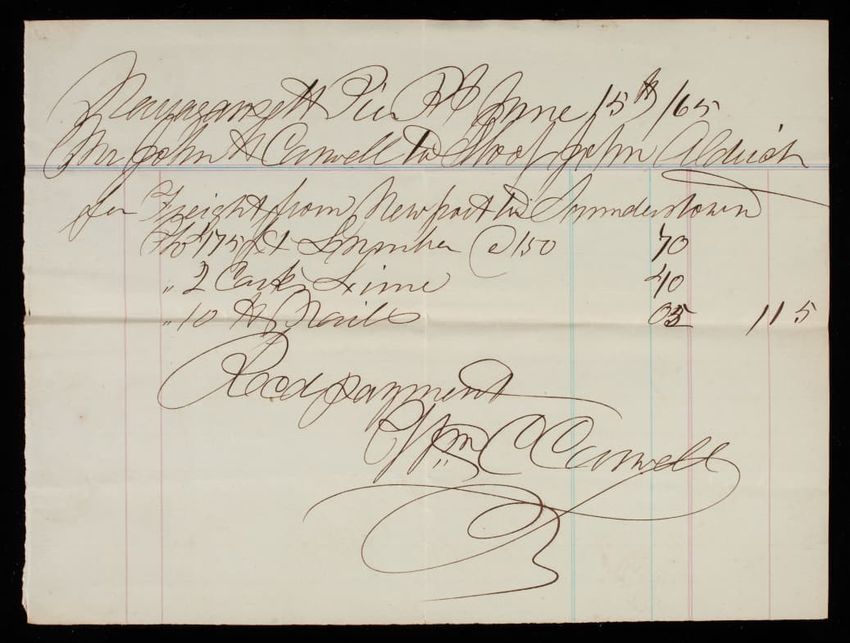 Narragansett Pier RI June 15th /65
Mr John H Caswell to Sloop John Aldrich
for Freight from Newport to Saunderstown
To 475 ft Lumber @ 150 70
" 2 Casks Lime 40
" 10 lb Nails 05 115
Recd payment
Wm C Caswell